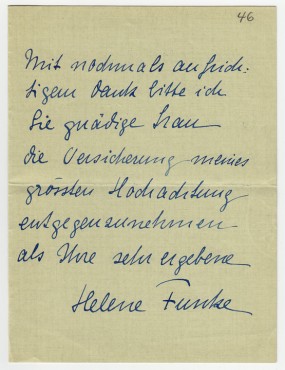 46
Mit nochmals aufrich-
tigem Dank bitte ich
Sie gnädige Frau
die Versicherung meines
grössten Hochachtung
entgegenzunehmen
als Ihre sehr ergebene
Helene Funke